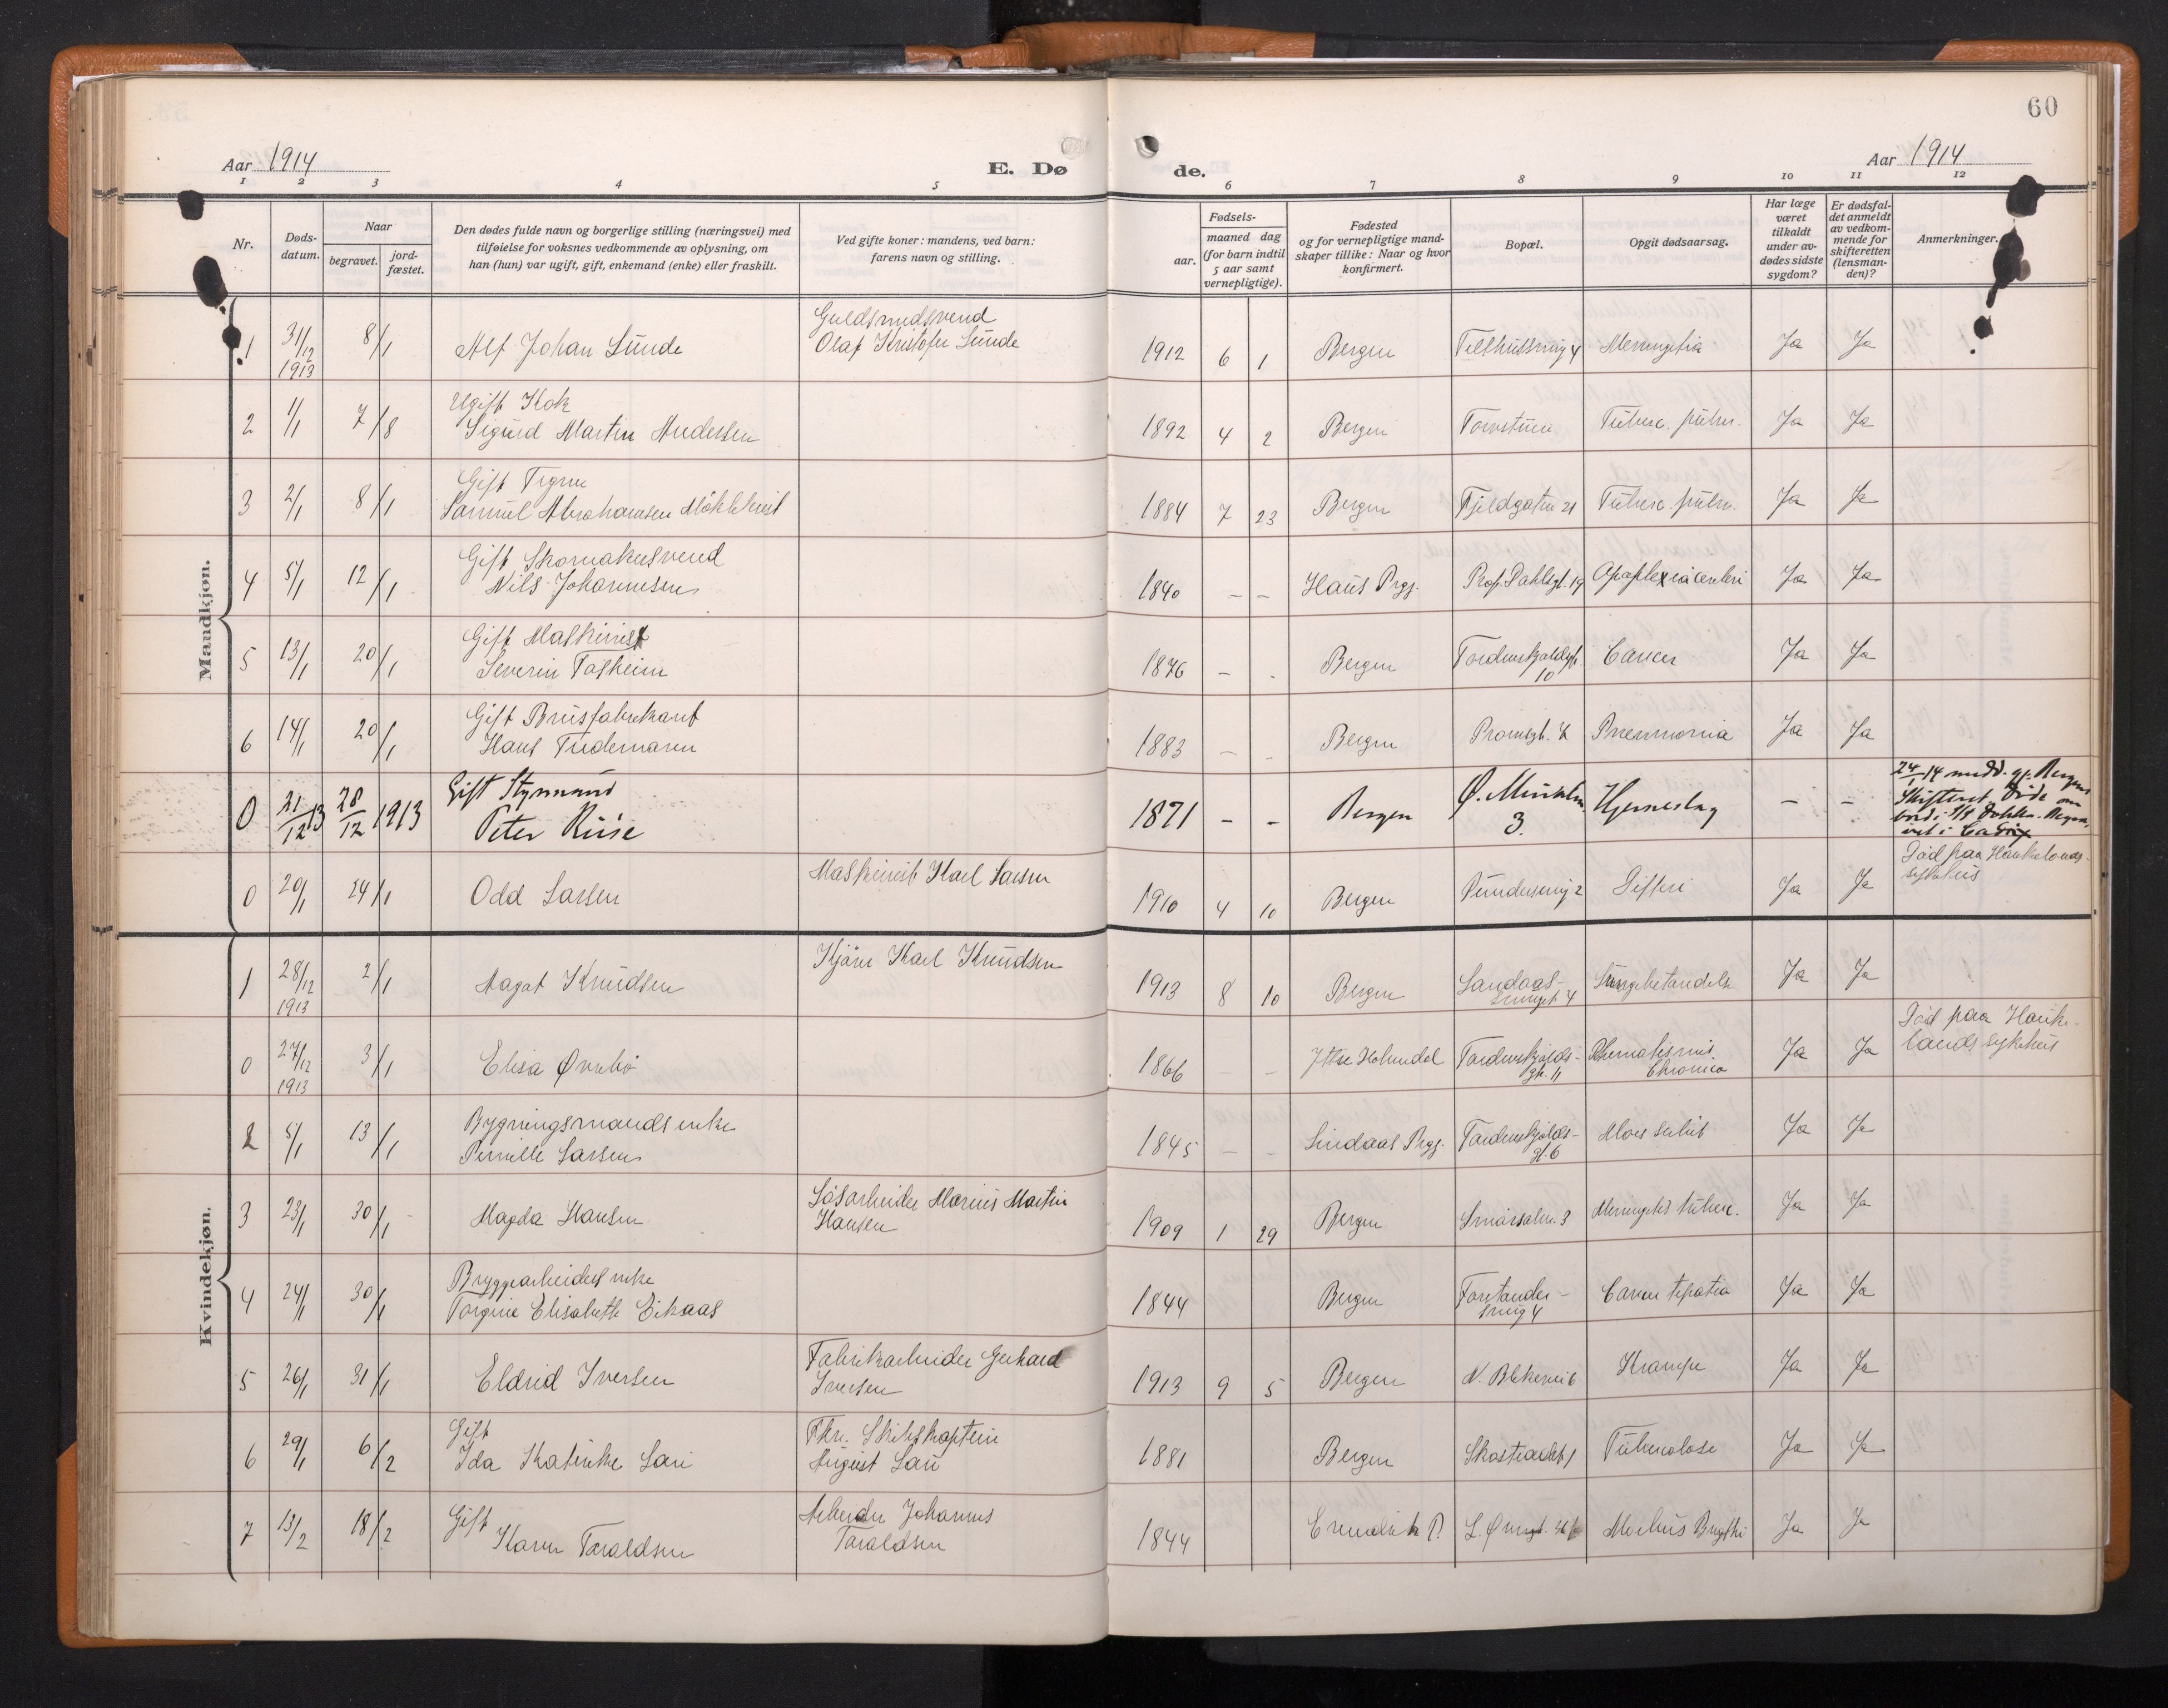 60
Aar 1914
E. Dø
de.
Aar 1914
1 2 3 4 5 6 7 8 9 10 11 12
Nr.
Døds-
datum.
Naar
begravet.
jord-
fæstet.
Den dødes fulde navn og borgerlige stilling (næringsvei) med
tilføielse for voksnes vedkommende av oplysning, om
han (hun) var ugift, gift, enkemand (enke) eller fraskilt.
Ved gifte koner: mandens, ved barn:
farens navn og stilling.
Fødsels-
aar.
maaned dag
(for barn indtil
5 aar samt
vernepligtige).
Fødested
og for vernepligtige mand-
skaper tillike: Naar og hvor
konfirmert.
Bopæl.
Opgit dødsaarsag.
Har læge
været
tilkaldt
under av-
dødes sidste
sygdom?
Er dødsfal-
det anmeldt
av vedkom-
mende for
skifteretten
(lensman-
den)?
Anmerkninger.
Mandkjøn.
1 31/12 1913 8/1 Alf Johan Sunde
Guldsmedsvend
Olaf Kristofer Sunde
1912 6 1 Bergen 4 Ja Ja
2 1/1 7/8 Ugift Kok
Sigurd Martin Andersen
1892 4 2 Bergen Tuberc. pulm. Ja Ja
3 2/1 8/1 Gift
Samuel Abrahamsen
1884 7 23 Bergen Fjeldgaten 21 Tuberc. pulm. Ja Ja
4 5/1 12/1 Gift Skomakersvend
Nils Johannesen
1840 – – Haus Prgj. Prof. Dahlsgt. 19 Ja Ja
5 13/1 20/1 Gift Maskinist
Severin
1876 – - Bergen Tordenskjoldsgt.
10
Cancer Ja Ja
6 14/1 20/1 Gift Brusfabrikant
Hans Tiedemann
1883 – - Bergen Pneumonia Ja Ja
0 21/12 13 28/12 1913 Gift Styrmand
Peter Riise
1871 – – Bergen
3.
Hjerneslag – –
0 20/1 24/1 Odd Larsen
Maskinist Karl Larsen
1910 4 10 Bergen 2 Difteri Ja Ja
Død paa Haukelands
sykehus
Kvindekjøn.
1 28/12 1913 2/1 Aagot Knudsen
Kjører Karl Knudsen
1913 8 10 Bergen Landaas-
4
Lungebetændelse Ja Ja
0 27/12 1913 3/1 Elisa Øvrebø
1866 – – Ytre Holmedal Tordenskjolds-
gt. 11
Rheumatismus
Chronica
Ja Ja
Død paa Hauke-
lands sykehus
2 5/1 13/1 Bygningsmands enke
Pernille Larsen
1845 – – Lindaas Prgj. Tordenskjolds-
gt. 6
Mors subit Ja Ja
3 23/1 30/1 Magda Hansen
Løsarbeider Marius Martin
Hansen
1909 1 29 Bergen 3 Meningitis tuberc. Ja Ja
4 24/1 30/1 Bryggearbeiders enke
Torgine Elisabeth Eikaas
1844 Bergen Forstander-
smug 4
Ja Ja
5 26/1 31/1 Eldrid Iversen
Fabrikarbeider Gerhard
Iversen
1913 9 5 Bergen Krampe Ja Ja
6 29/1 6/2 Gift
Ida Katinke Lau
Fhv. Skibskaptein
August Lau
1881 Bergen Tuberculose Ja Ja
7 13/2 18/2 Gift
Karen Taraldsen
Arbeider Johannes
Taraldsen
1844 Morbus Brigthi Ja Ja